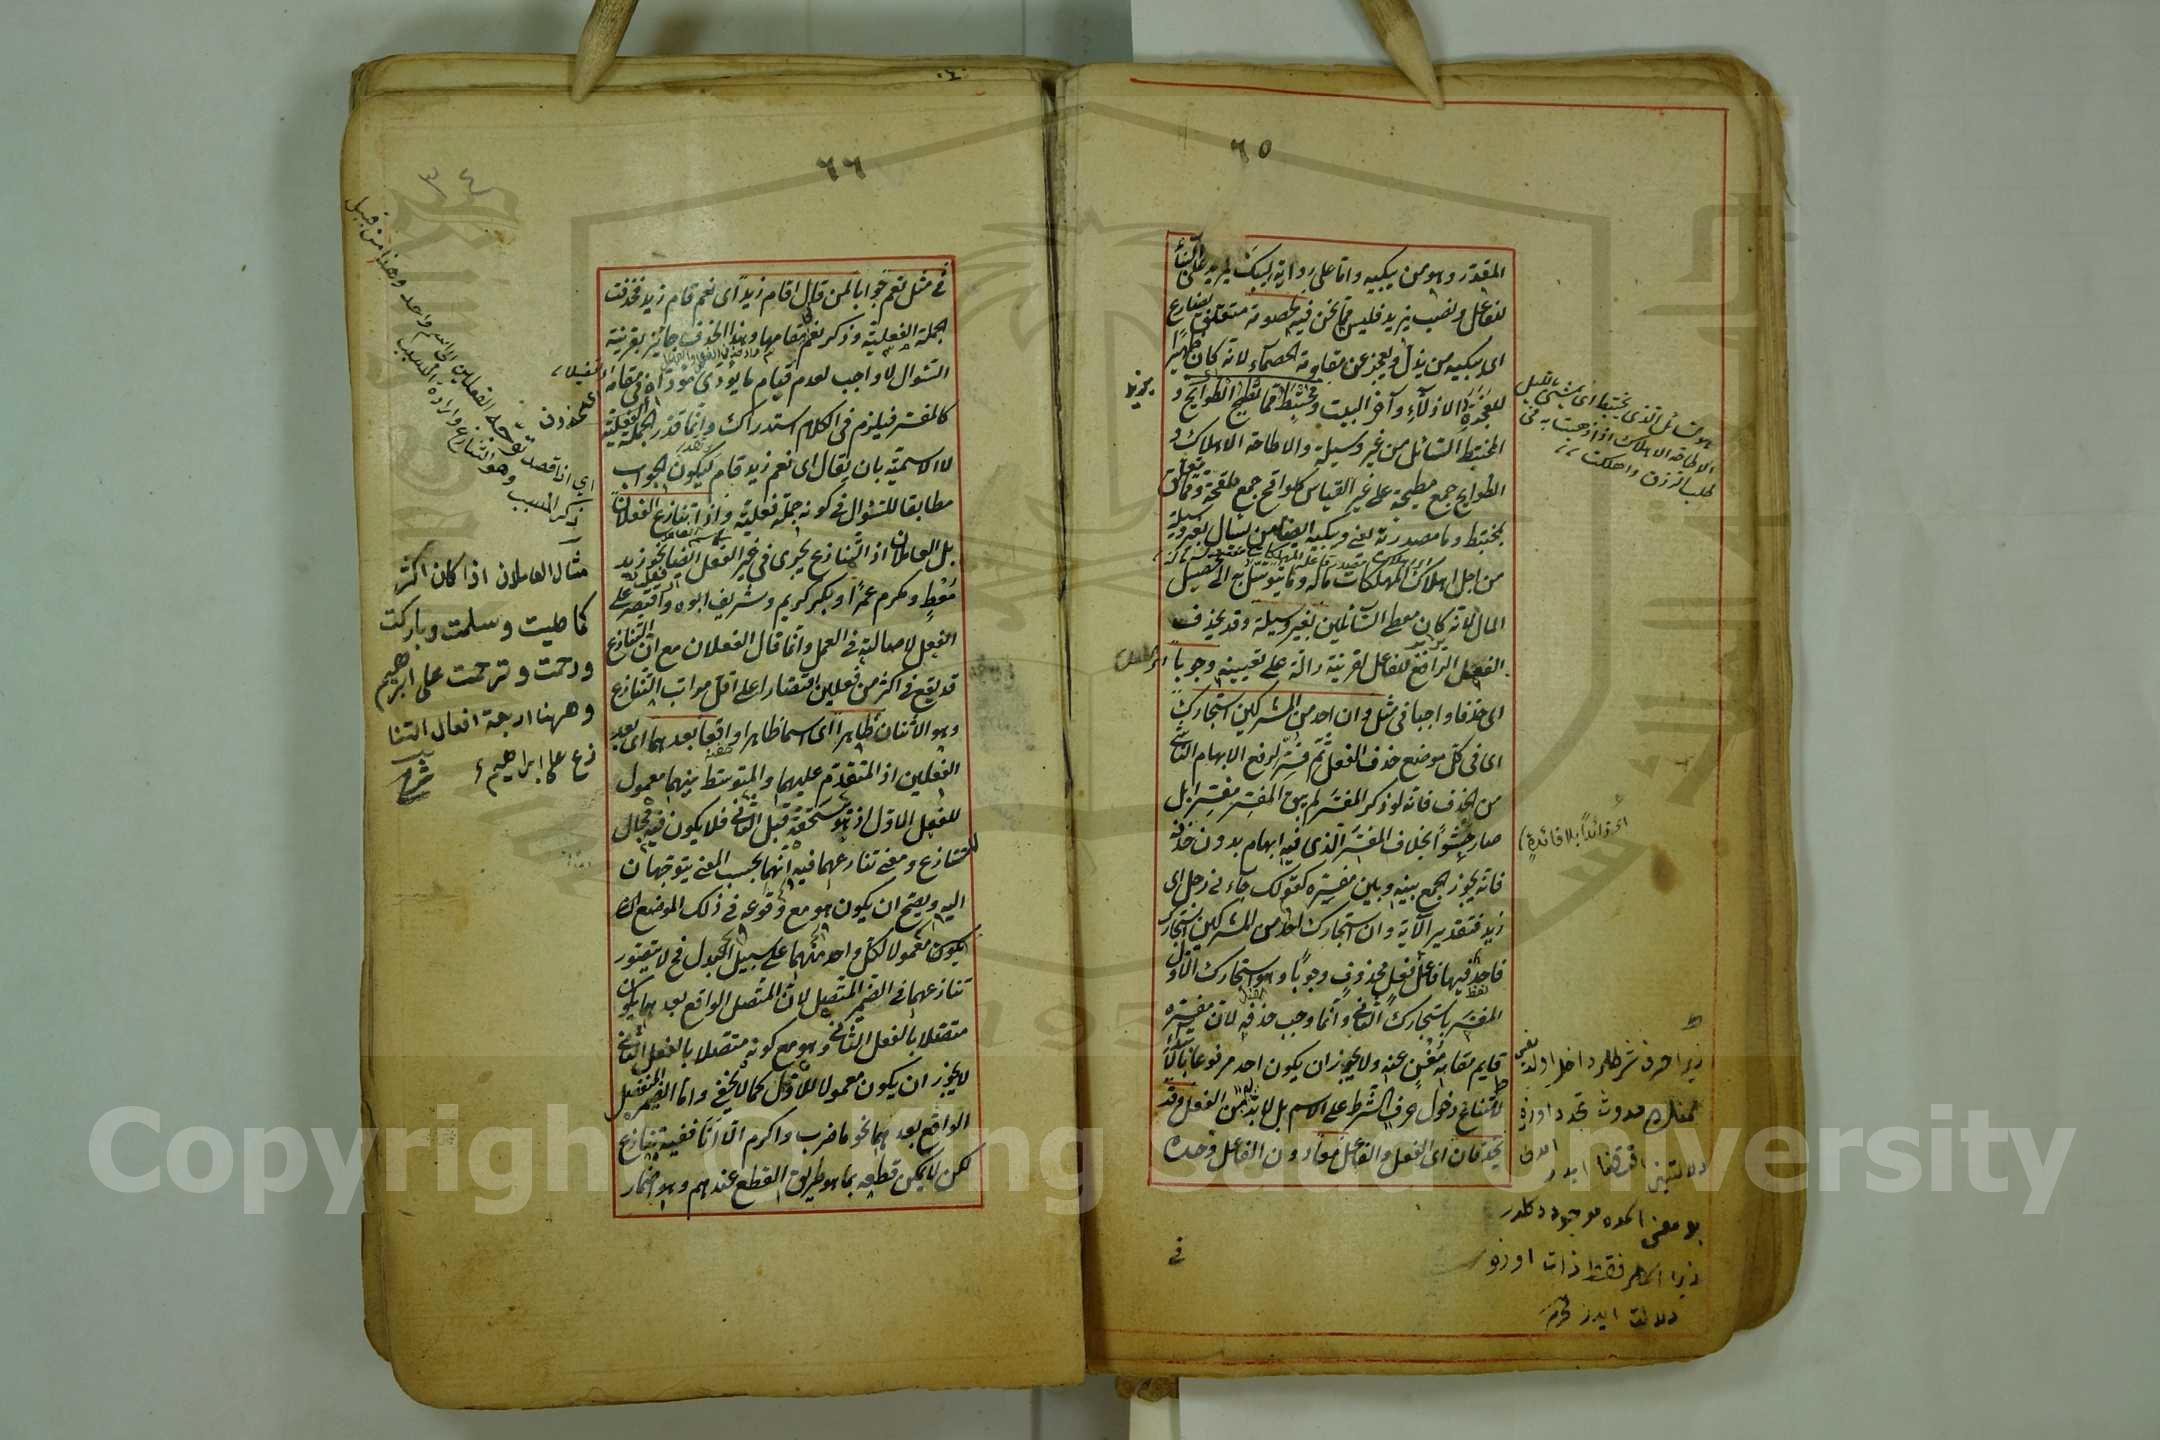 ٦٥
المقدر وهو من يبكيه واما على رواية ليبك يزيد على البناء
للفاعل ونصب يزيد فليس مما نحن فيه لخصومة متعلق بضارع
اى يبكيه من يذل ويعجز عن مقاومة الخصماء لانه كان ظهيرا
للعجزة الاذلاء وآخر البيت ومختبط مما تطيح الطوايح و
المختبط السائل من غير وسيلة والاطاحة الاهلاك و
الطوايح جمع مطيحة على غير القياس كلواقح جمع ملقحة ومما يتعلق
بمختبط وما مصدرية يعنى ويبكيه ايضا من يسال بغير وسيلة
من اجل اهلاك المهلكات ماله وما يتوسل به الى تحصيل
المال لانه كان معطى السائلين بغير وسيلة وقد يحذف
الفعل الرافع للفاعل لقرينة دالة على تعيينه وجوبا
اى حذفا واجبا فى مثل وان احد من المشركين استجارك
اى فى كل موضع حذف الفعل ثم فسر لرفع الابهام الناشى
من الحذف فانه لو ذكر المفسر لم يبق المفسر مفسرا بل
صار حشوا بخلاف المفسر الذى فيه ابهام بدون حذفه
فانه يجوز الجمع بينه وبين مفسره كقولك جاءنى رجل اى
زيد فتقدير الآية وان استجارك احد من المشركين استجارك
فاحد فيها فاعل فعل محذوف وجوبا وهو استجارك الاول
المفسر باستجارك الثانى وانما وجب حذفه لان مفسره
قايم مقامه مغن عنه ولا يجوز ان يكون احد مرفوعا بالابتداء
لامتناع دخول حرف الشرط على الاسم بل لا بد له من الفعل وقد
يحذفان اى الفعل والفاعل معا دون الفاعل وحده
فى
هو سائل الذى يختبط اى
الاطاحة الاهلاك اذا ذهبت به فى
طلب الرزق واهلكت
اى زائدا بلا فائدة
زيرا حرف شرطلر داخل اولديغى
بو معنى اسمده موجود دكلدر
زيرا اسملر فقط ذات اوزره
دلالت ايدر
٦٦
فى مثل نعم جوابا لمن قال اقام زيد اى نعم قام زيد فحذفت
الجملة الفعلية وذكر نعم مقامها وهذا الحذف جائز بقرينة
السؤال لا واجب لعدم قيام ما يؤدى مؤداه فى مقامه
كالمفسر فيلزم فى الكلام استدراك وانما قدر الجملة الفعلية
لا الاسمية بان يقال اى نعم زيد قام ليكون الجواب
مطابقا للسؤال فى كونه جملة فعلية واذا تنازع الفعلان
بل العاملان اذ التنازع يجرى فى غير الفعل ايضا نحو زيد
معط ومكرم عمرا وبكر كريم وشريف ابوه واقتصر على
الفعل لاصالته فى العمل وانما قال الفعلان مع ان التنازع
قد يقع فى اكثر من فعلين اقتصارا على اقل مراتب التنازع
وهو الاثنان ظاهرا اى اسما ظاهرا واقعا بعدهما اى بعد
الفعلين اذ المتقدم عليهما والمتوسط بينهما معمول
للفعل الاول اذ هو يستحقه قبل الثانى فلا يكون فيه مجال
للتنازع ومعنى تنازعهما فيه انهما بحسب المعنى يتوجهان
اليه ويصح ان يكون هو مع وقوعه فى ذلك الموضع ان
يكون معمولا لكل واحد منهما على سبيل البدل فح لا يتصور
تنازعهما فى الضمير المتصل لان المتصل الواقع بعدهما يكون
متصلا بالفعل الثانى وهو مع كونه متصلا بالفعل الثانى
لا يجوز ان يكون معمولا للاول كما لا يخفى واما الضمير المنفصل
الواقع بعدهما نحو ما ضرب واكرم الا انا ففيه تنازع
لكن لا يمكن قطعه بما هو طريق القطع عندهم وهو اضمار
اى اذا قصد توجه الفعلين الى اسم واحد وهذا من قبيل
ذكر السبب وهو التنازع وارادة المسبب
مثال العاملان اذا كان اكثر
كما صليت وسلمت وباركت
ورحمت وترحمت على ابراهيم
وههنا اربعة افعال التنا
زع على ابراهيم
شرح